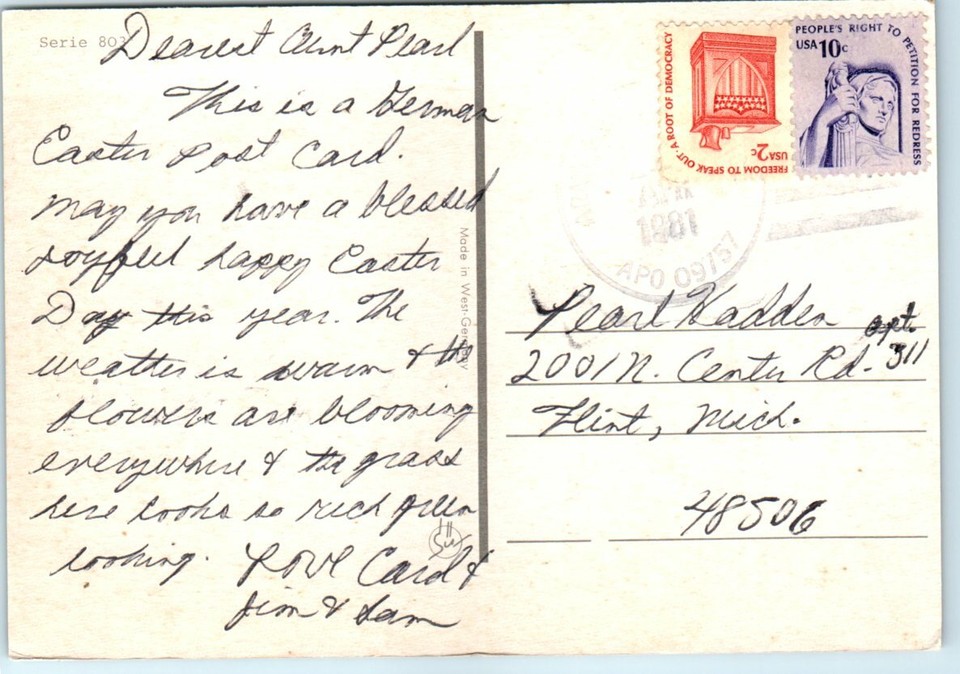 Serie 803
Dearest Aunt Pearl
This is a German
Easter Post Card.
May you have a blessed
joyful happy Easter
Day this year. The
weather is warm & the
flowers are blooming
everywhere & the grass
here looks so rich green
looking. Love Carol &
Jim & Sam
Made in West-Germany
PEOPLE'S RIGHT TO PETITION FOR REDRESS
USA 10c
FREEDOM TO SPEAK OUT · A ROOT OF DEMOCRACY
USA 2c
1981
APO 09757
Pearl Hadden apt.
2001 N. Center Rd. 311
Flint, Mich.
48506